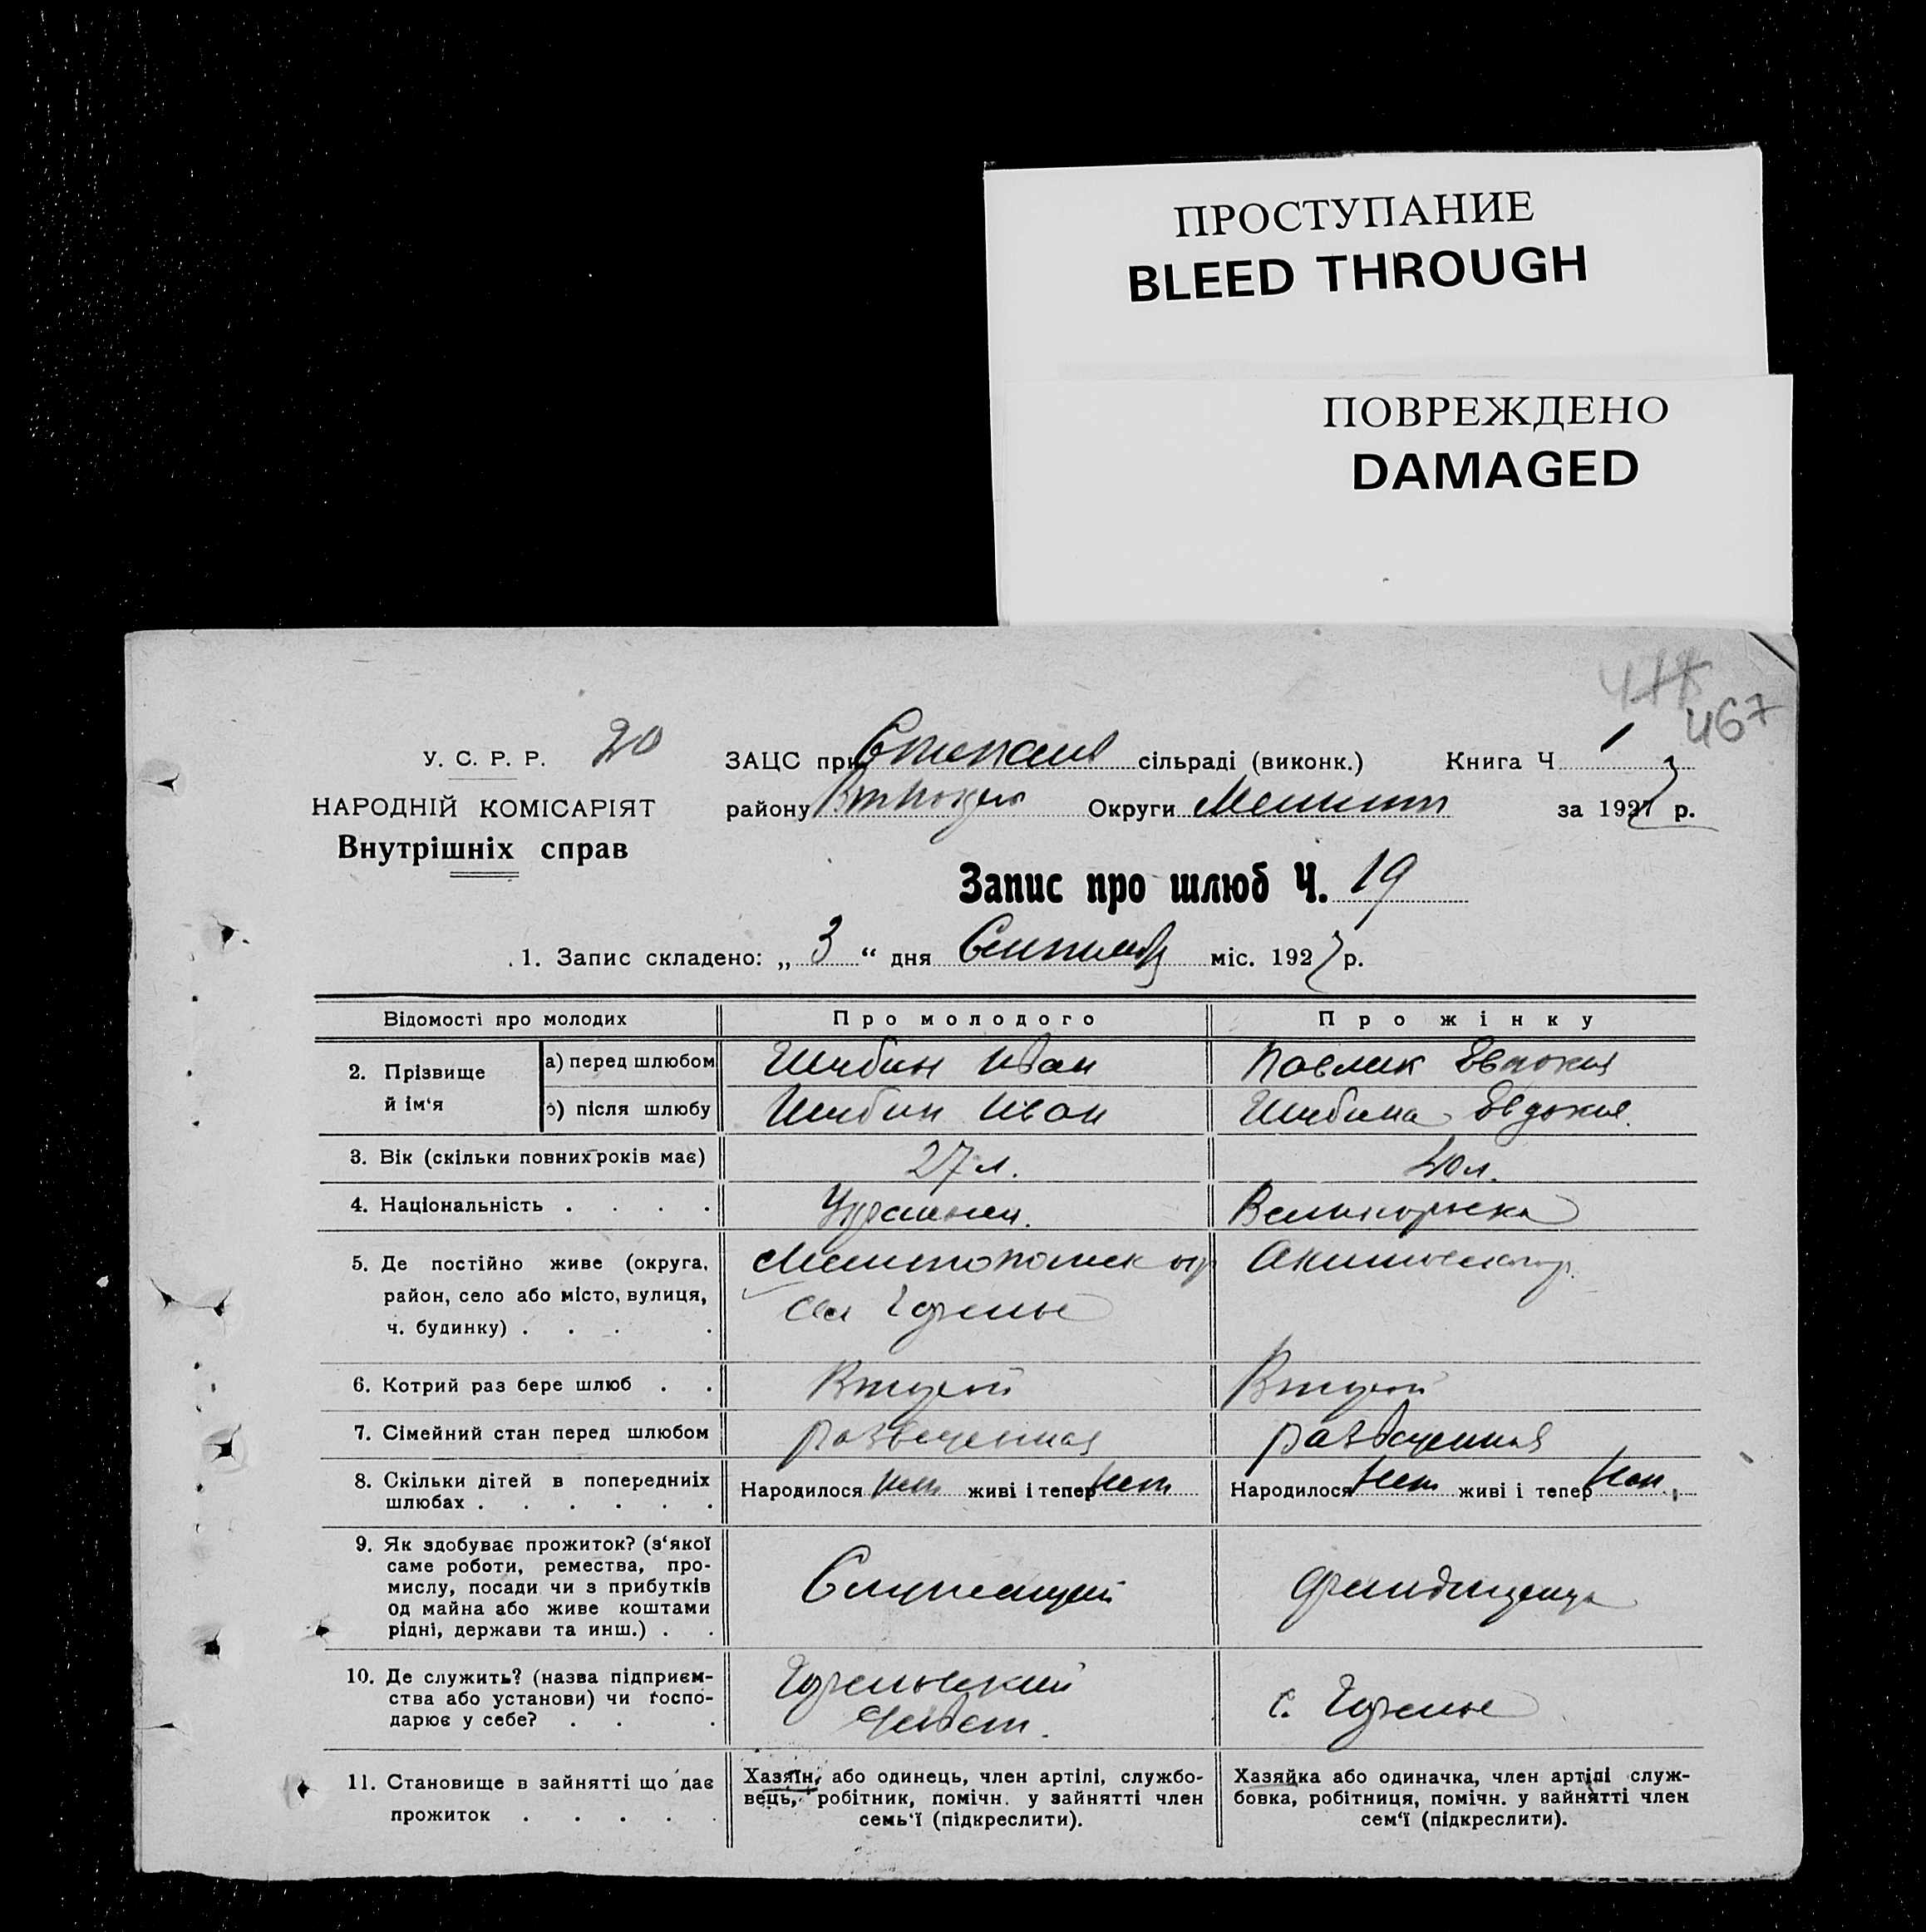 ПРОСТУПАНИЕ
BLEED THROUGH
ПОВРЕЖДЕНО
DAMAGED
467
У. С. Р. Р. 20
ЗАЦС при сільраді (виконк.) Книга Ч 1
НАРОДНІЙ КОМІСАРІЯТ
району Округи Мелитоп за 1927 р.
Внутрішніх справ
Запис про шлюб Ч. 19
1. Запис складено: „ 3 “ дня Сентября міс. 1927 р.
Відомості про молодих Про молодого Про жінку
2. Прізвище й ім‘я
а) перед шлюбом Шибин Иван Павлик Евдокия
б) після шлюбу Шибин Иван Шибина Евдокия
3. Вік (скільки повних років має) 27 л. 40 л.
4. Національність . . . . Великорусска
5. Де постійно живе (округа,
район, село або місто, вулиця,
ч. будинку) . . . .
6. Котрий раз бере шлюб . . Второй Второй
7. Сімейний стан перед шлюбом разведенная разведенная
8. Скільки дітей в попередниіх
шлюбах . . . . . .
Народилося нет живі і тепер нет Народилося нет живі і тепер нет
9. Як здобуває прожиток? (з‘якої
саме роботи, ремества, про-
мислу, посади чи з прибутків
од майна або живе коштами
рідні, держави та инш.) . .
Служащий
10. Де служить? (назва підприєм-
ства або установи) чи госпо-
дарює у себе? . . .
с.
11. Становище в зайнятті що дає
прожиток . . . . .
Хазяїн, або одинець, член артілі, службо-
вець, робітник, помічн. у зайнятті член
семь‘ї (підкреслити).
Хазяйка або одиначка, член артілі служ-
бовка, робітниця, помічн. у зайнятті член
сем‘ї (підкреслити).